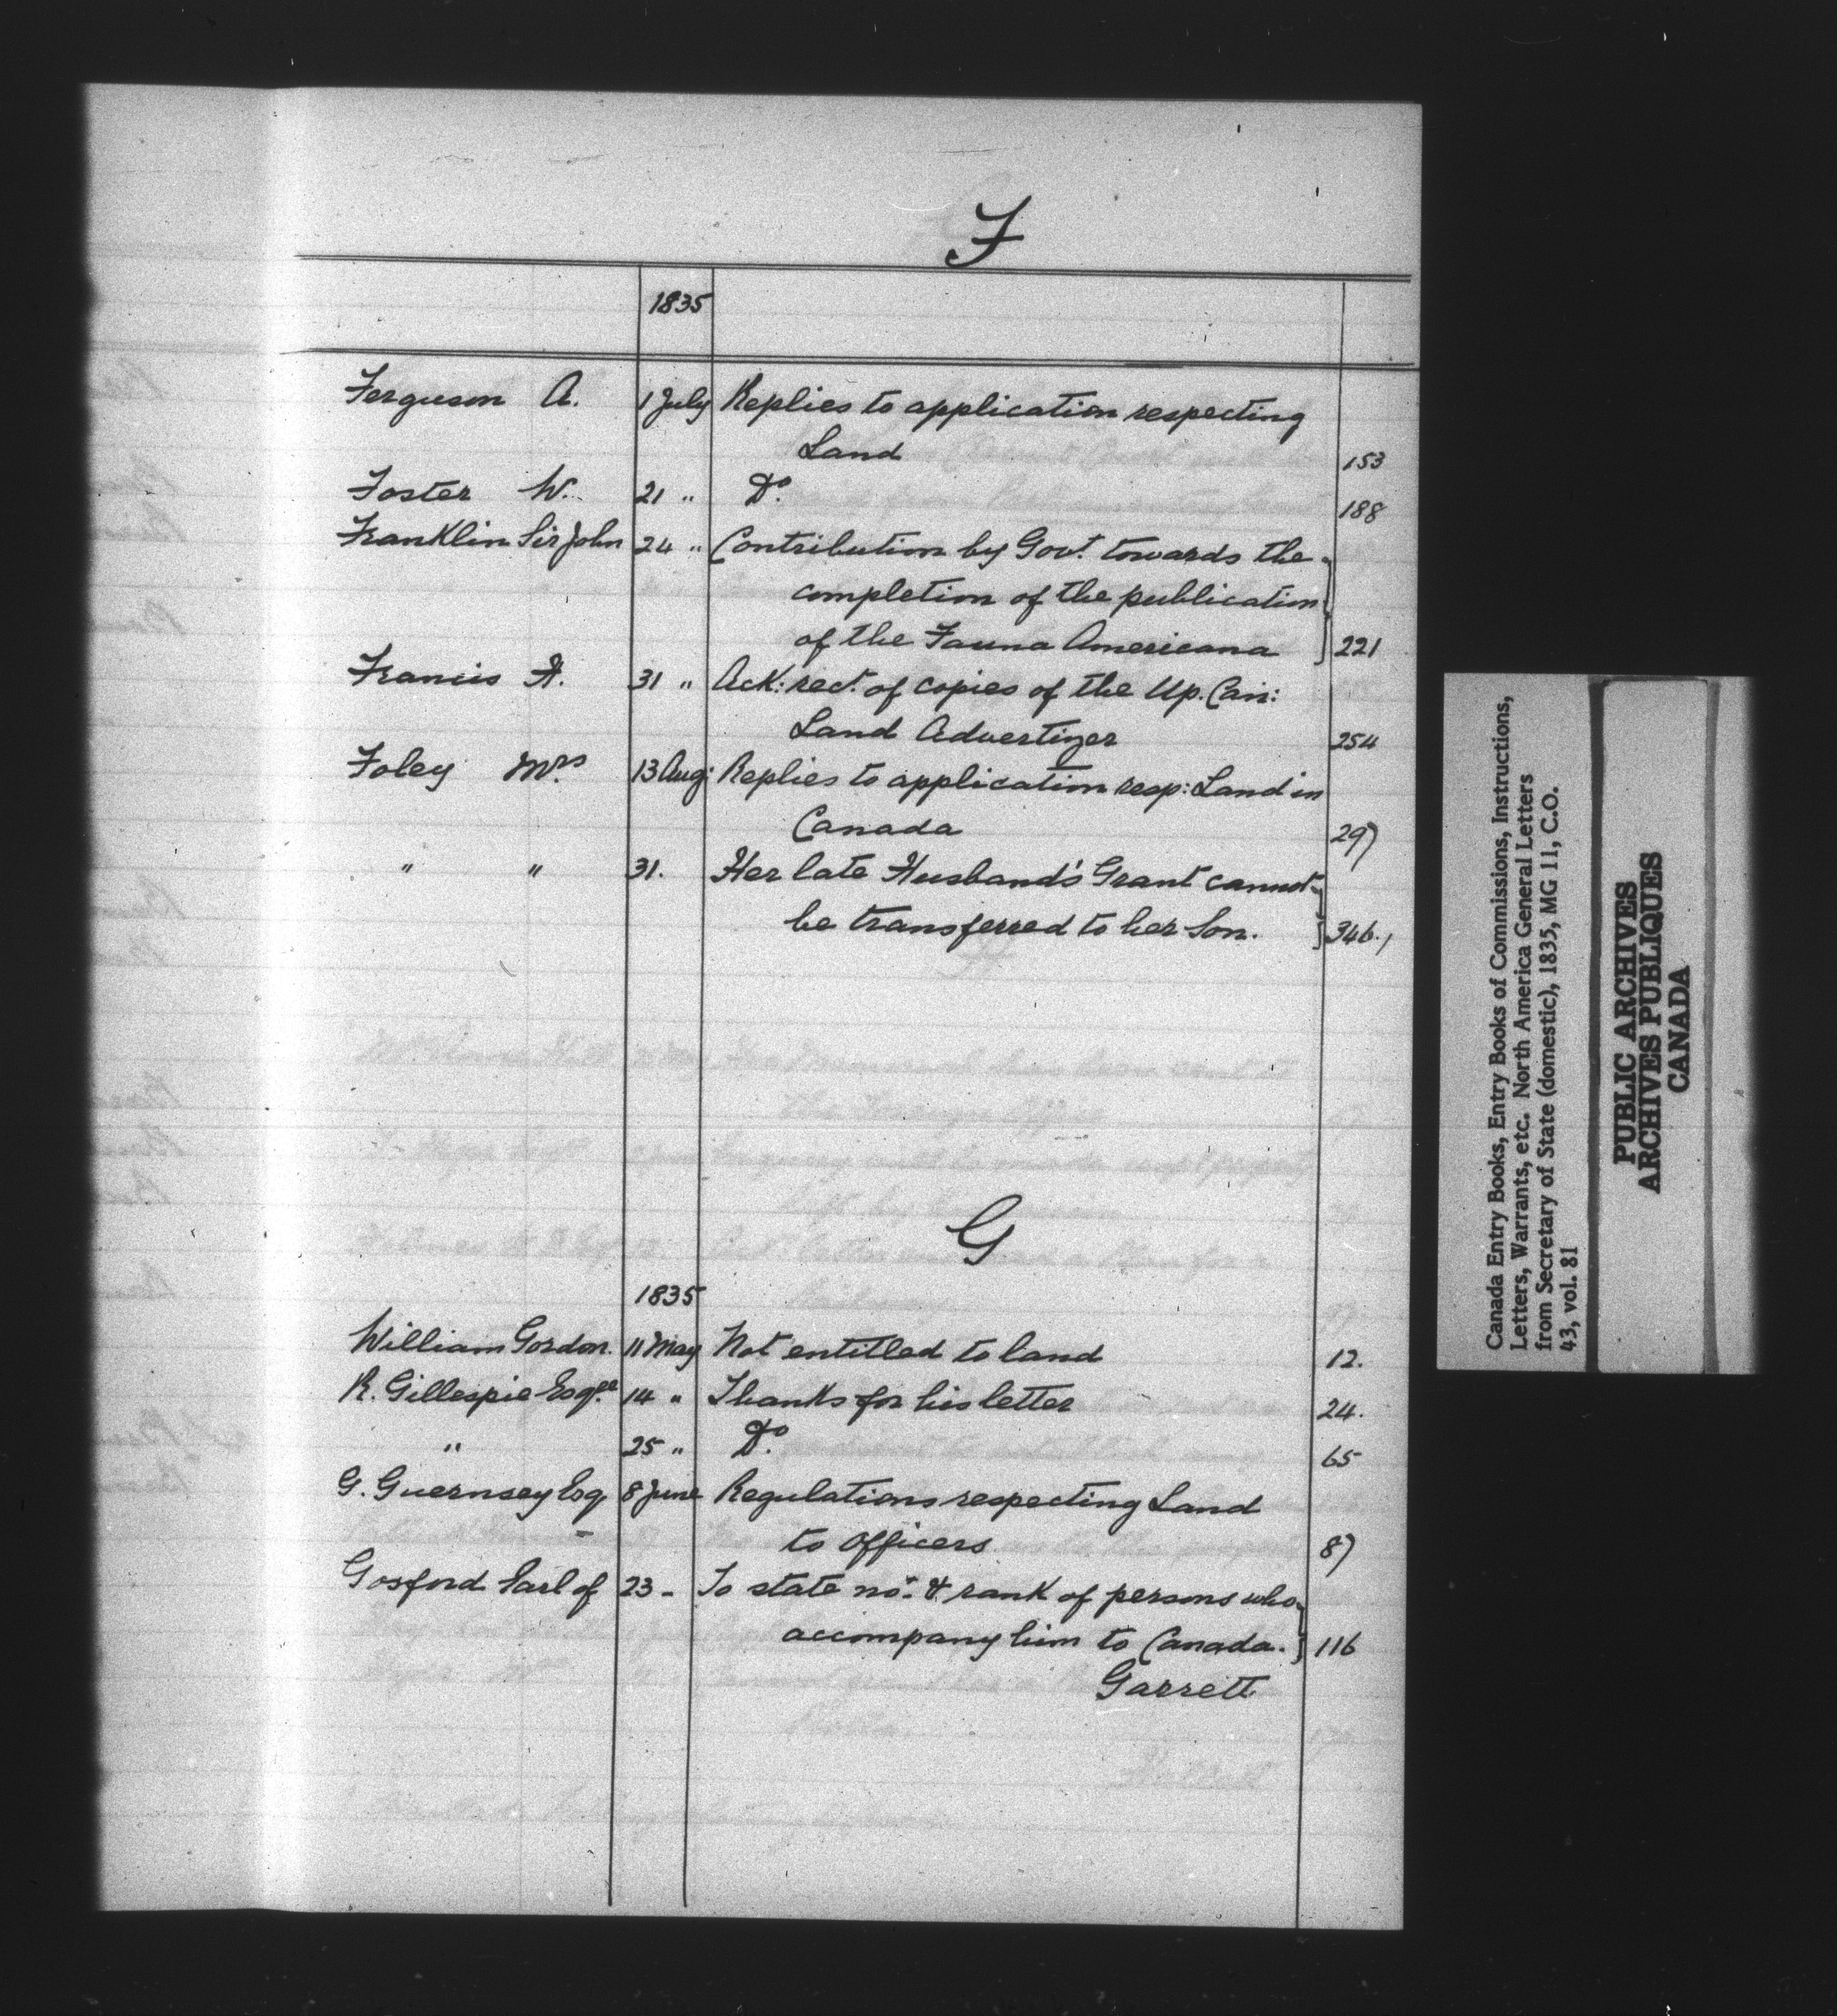 F
1835
Ferguson A. 1 July Replies to application respecting
Land 153
Foster W. 21 " Do. 188
Franklin Sir John 24 " Contribution by Govt. towards the
completion of the publication
of the Fauna Americana 221
Francis A. 31 " Ack: rect. of copies of the Up. Can:
Land Advertizer 254
Foley Mrs. 13 Aug: Replies to application resp: Land in
Canada 297
" " 31. Her late Husband's Grant cannot
be transferred to her Son. 346.
G
1835
William Gordon. 11 May Not entitled to land 12.
R. Gillespie Esqre. 14 " Thanks for his letter 24.
" 25 " Do. 65
G. Guernsey Esq 8 June Regulations respecting Land
to Officers 87
Gosford Earl of 23 - To state no. & rank of persons who
accompany him to Canada. 116
Garrett
Canada Entry Books, Entry Books of Commissions, Instructions,
Letters, Warrants, etc. North America General Letters
from Secretary of State (domestic), 1835, MG 11, C.O.
43, vol. 81
PUBLIC ARCHIVES
ARCHIVES PUBLIQUES
CANADA